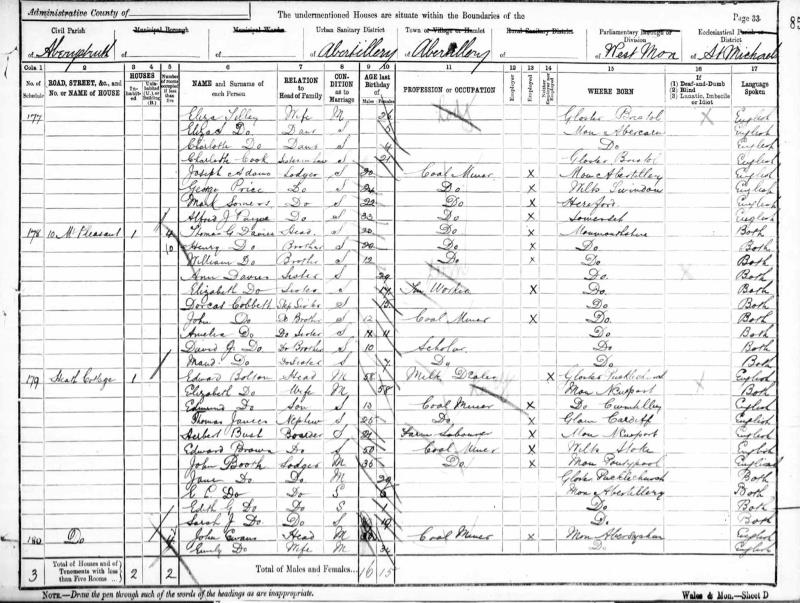 Administrative County of
The undermentioned Houses are situate within the Boundaries of the
Page 33
85
Civil Parish
Municipal Borough
Municipal Ward
Urban Sanitary District
Town or Village or Hamlet
Rural Sanitary District
Parliamentary Borough or Division
Ecclesiastical Parish or District
of Aberystruth
of
of
of Abertillery
of Abertillery
of
of West Mon
of St Michael
Cols. 1 2 3 4 5 6 7 8 9 10 11 12 13 14 15 16 17
No. of Schedule
ROAD, STREET, &c., and No. or NAME of HOUSE
HOUSES
Inhabited
Uninhabited (U.), or Building (B.)
Number of rooms occupied if less than five
NAME and Surname of each Person
RELATION to Head of Family
CONDITION as to Marriage
AGE last Birthday of
Males
Females
PROFESSION or OCCUPATION
Employer
Employed
Neither Employer nor Employed
WHERE BORN
If (1) Deaf-and-Dumb (2) Blind (3) Lunatic, Imbecile or Idiot
Language Spoken
177 Eliza Silley Wife M Gloster Bristol X English
Eliza Do Daur S Mon Abercarn English
Charlotte Do Daur S 4 Do English
Charlotte Cook Sister in law S 21 Gloster Bristol English
Joseph Adams Lodger S 20 Coal Miner X Mon Abertillery English
George Price Do S Do X Wilts Swindon English
Mark Somers Do S 22 Do X Hereford English
Alfred J Payne Do S 33 Do X Somerset English
178 10 Mt Pleasant 1 Thomas G Davies Head S 20 Do X Monmouthshire Both
Henry Do Brother S 20 Do X Do Both
William Do Brother S 12 Do X Do Both
Ann Davies Sister S Do Both
Elizabeth Do Sister S Tin Worker X Do Both
Dorcas Cobbett Step Sister S 15 Do Both
John Do Do Brother S 12 Coal Miner X Do Both
Amelia Do Do Sister S 11 Do Both
David J Do Do Brother S 10 Scholar Do Both
Maud Do Do Sister S 7 Do Do Both
179 Heath Cottage 1 Edward Bolton Head M 58 Milk Dealer X Gloster Pucklechurch English
Elizabeth Do Wife M 58 Mon Newport Both
Edmund Do Son S Coal Miner X Do Cwmtillery English
Thomas James Nephew S 25 Do X Glam Cardiff English
Herbert Bust Boarder S Farm Labourer X Mon Newport English
Edward Brown Do S 50 Coal Miner X Wilts Stoke English
John Booth Lodger M 35 Do X Mon Pontypool English
Jane Do Do M 29 Gloster Pucklechurch Both
E L Do Do S 6 Mon Abertillery Both
Edith G Do Do S 1 Do Both
Sarah J Do Do S 10 Do Both
180 Do John Evans Head M Coal Miner X Mon English
Emily Do Wife M Do English
3
Total of Houses and of Tenements with less than Five Rooms
2
2
Total of Males and Females
16 15
NOTE.—Draw the pen through such of the words of the headings as are inappropriate.
Wales & Mon.—Sheet D